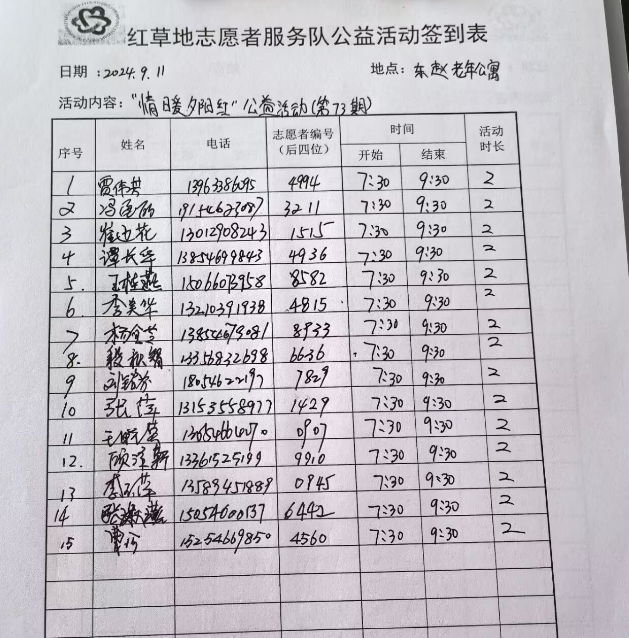 红草地志愿者服务队公益活动签到表
日期：2024.9.11 地点：东赵老年公寓
活动内容："情暖夕阳红"公益活动(第73期)
序号 姓名 电话 志愿者编号（后四位） 时间 开始 结束 活动时长
1 贾伟英 13963386095 4994 7:30 9:30 2
2 3211 7:30 9:30 2
3 崔迎花 13012908243 1515 7:30 9:30 2
4 谭长华 13854699843 4936 7:30 9:30 2
5. 王桂燕 15066073958 8582 7:30 9:30 2
6 李美华 13210391938 4815 7:30 9:30 2
7 杨全芝 13854673081 8933 7:30 9:30 2
8. 6636 7:30 9:30 2
9 7829 7:30 9:30 2
10 张萍 13153558977 1429 7:30 9:30 2
11 0907 7:30 9:30 2
12. 13361525199 9910 7:30 9:30 2
13 13589451889 0945 7:30 9:30 2
14 15054600137 6442 7:30 9:30 2
15 15254669850 4560 7:30 9:30 2